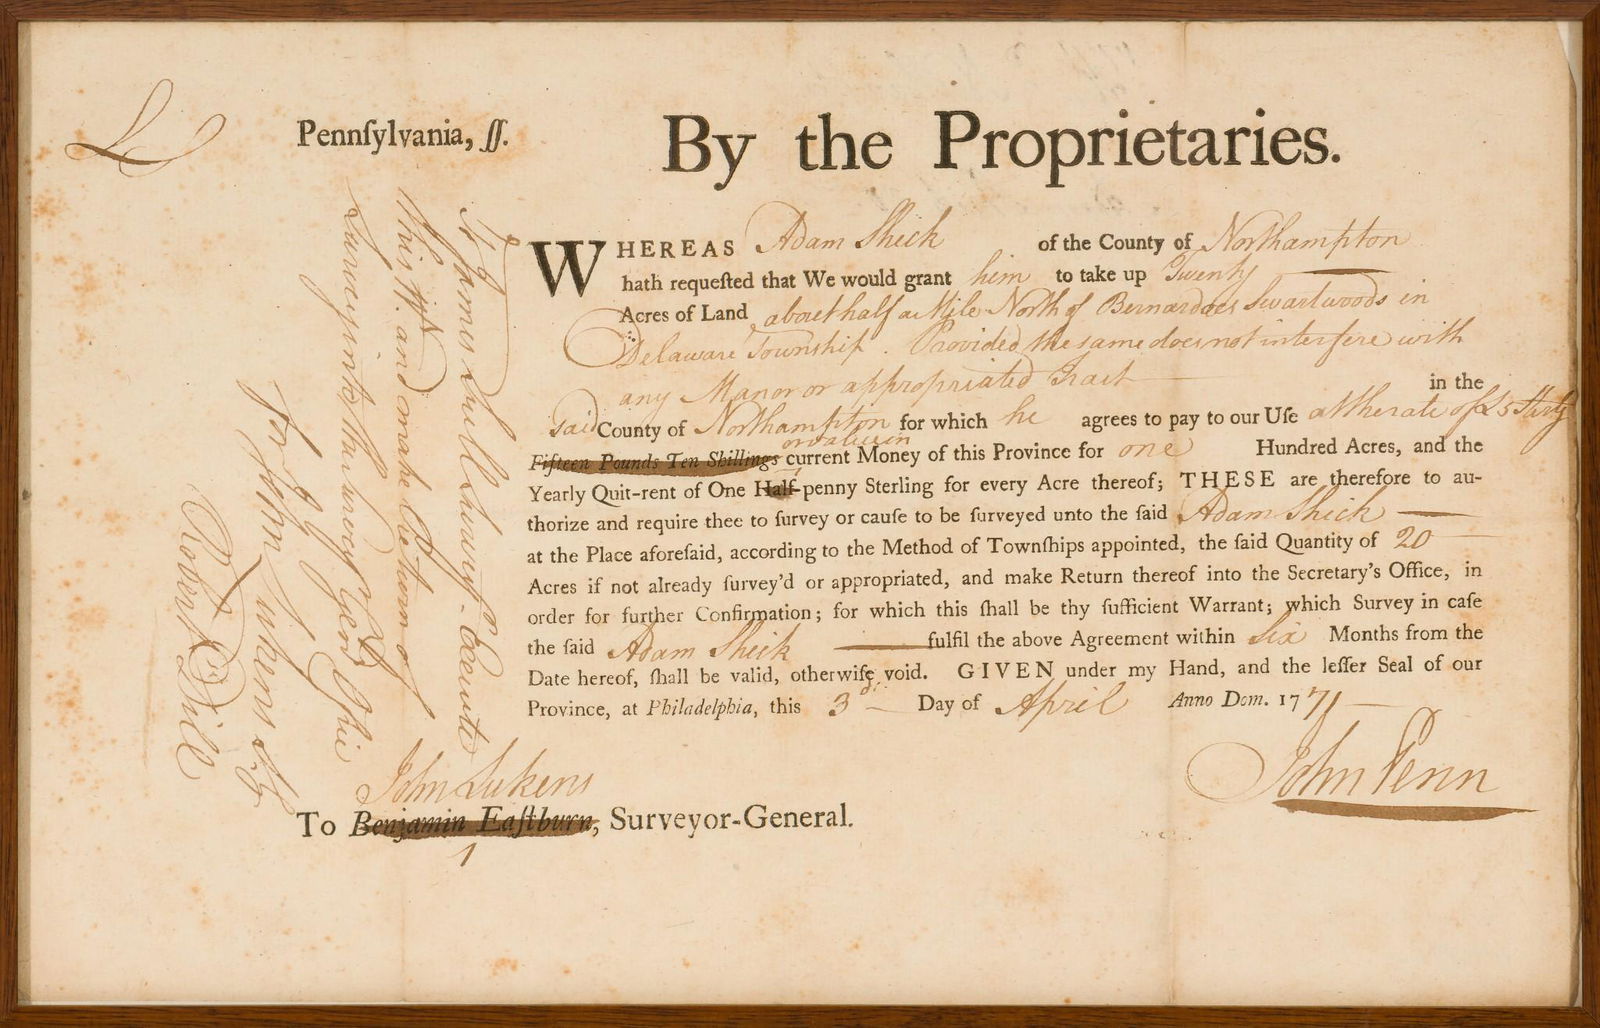 Pennſylvania, ſſ.
By the Proprietaries.
WHEREAS Adam Shick of the County of Northampton
hath requeſted that We would grant him to take up Twenty
Acres of Land about half a Mile North of Bernardus Swartwoods in
Delaware Township. Provided the same does not interfere with
any Manor or appropriated Tract in the
said County of Northampton for which he agrees to pay to our Uſe at the rate of £5 Sterlg
or value in
Fifteen Pounds Ten Shillings current Money of this Province for one Hundred Acres, and the
Yearly Quit-rent of One Half-penny Sterling for every Acre thereof; THESE are therefore to au-
thorize and require thee to ſurvey or cauſe to be ſurveyed unto the ſaid Adam Shick
at the Place aforeſaid, according to the Method of Townſhips appointed, the ſaid Quantity of 20
Acres if not already ſurvey'd or appropriated, and make Return thereof into the Secretary's Office, in
order for further Confirmation; for which this ſhall be thy ſufficient Warrant; which Survey in caſe
the ſaid Adam Shick fulfil the above Agreement within six Months from the
Date hereof, ſhall be valid, otherwiſe void. GIVEN under my Hand, and the leſſer Seal of our
Province, at Philadelphia, this 3d. Day of April Anno Dom. 1771
John Penn
John Lukens
To Benjamin Eaſtburn, Surveyor-General.
To James Scull Execute
this and make Return of
Survey into the Surveyr Genls Offic
for John Lukens
Robert Dill